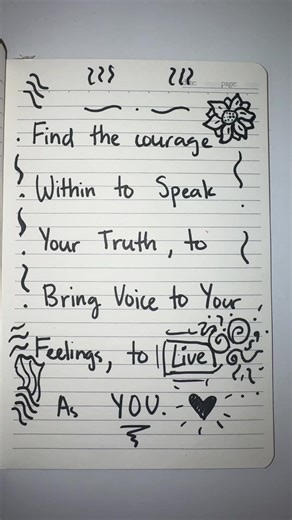 page
Find the courage
Within to Speak
Your Truth, to
Bring Voice to Your
Feelings, to Live
As YOU.